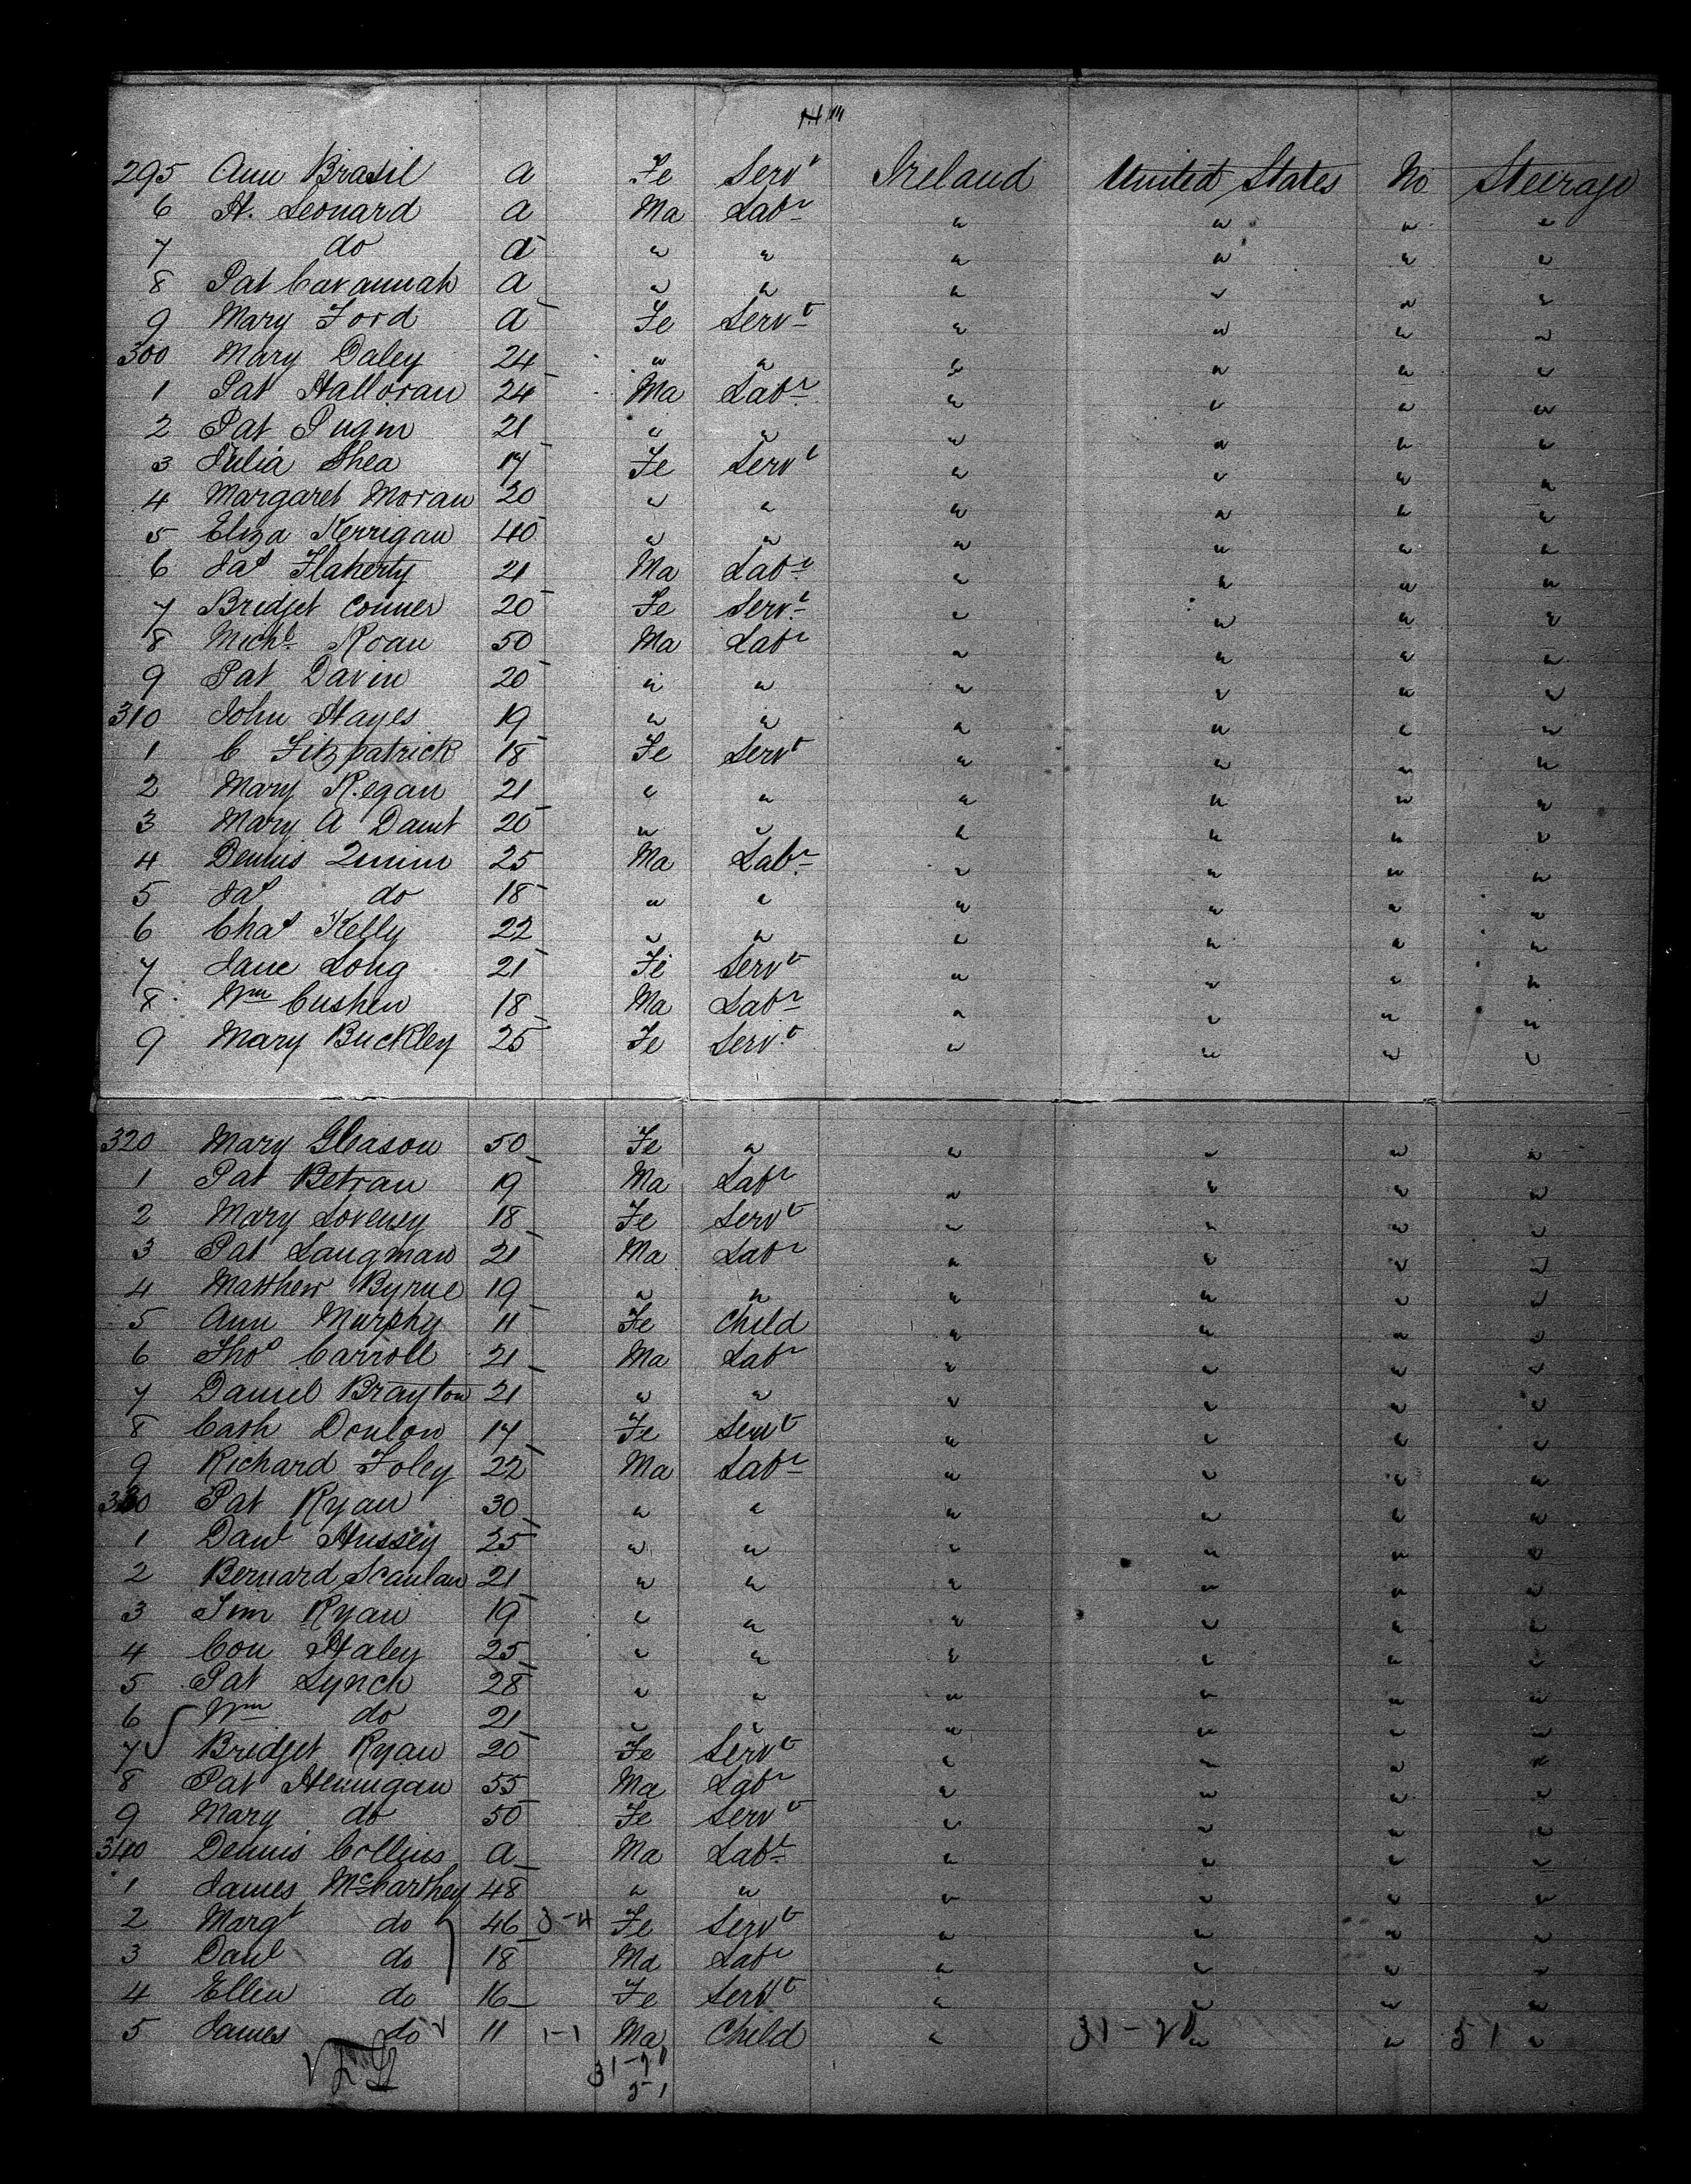 295 Ann Brasil a Fe Servt Ireland United States No Steerage
6 H. Leonard a Ma Labr " " " "
7 do a " " " " " "
8 Pat Cavannah a " " " " " "
9 Mary Ford a Fe Servt " " " "
300 Mary Daley 24 " " " " " "
1 Pat Halloran 24 Ma Labr " " " "
2 Pat 21 " " " " " "
3 Julia Shea 17 Fe Servt " " " "
4 Margaret Moran 20 " " " " " "
5 Eliza Kerrigan 40 " " " " " "
6 Jas Flaherty 21 Ma Labr " " " "
7 Bridget Conner 20 Fe Servt " " " "
8 Michl Roan 50 Ma Labr " " " "
9 Pat Davin 20 " " " " " "
310 John Hayes 19 " " " " " "
1 C Fitzpatrick 18 Fe Servt " " " "
2 Mary Regan 21 " " " " " "
3 Mary A Daunt 20 " " " " " "
4 Dennis Quinn 25 Ma Labr " " " "
5 Jas do 18 " " " " " "
6 Chas Kelly 22 " " " " " "
7 Jane Long 21 Fe Servt " " " "
8 Wm Cushen 18 Ma Labr " " " "
9 Mary Buckley 25 Fe Servt " " " "
320 Mary Gleason 50 Fe " " " " "
1 Pat Betran 19 Ma Labr " " " "
2 Mary Lovensy 18 Fe Servt " " " "
3 Pat Langman 21 Ma Labr " " " "
4 Matthew Byrne 19 " " " " " "
5 Ann Murphy 11 Fe Child " " " "
6 Thos Carroll 21 Ma Labr " " " "
7 Daniel Brayton 21 " " " " " "
8 Cath Donlon 17 Fe Servt " " " "
9 Richard Foley 22 Ma Labr " " " "
330 Pat Ryan 30 " " " " " "
1 Danl Hussey 25 " " " " " "
2 Bernard Scanlan 21 " " " " " "
3 Tim Ryan 19 " " " " " "
4 Con Haley 25 " " " " " "
5 Pat Lynch 28 " " " " " "
6 Wm do 21 " " " " " "
7 Bridget Ryan 20 Fe Servt " " " "
8 Pat Hennigan 55 Ma Labr " " " "
9 Mary do 50 Fe Servt " " " "
340 Dennis Collins a Ma Labr " " " "
1 James McCarthey 48 " " " " " "
2 Margt do 46 3-4 Fe Servt " " " "
3 Danl do 18 Ma Labr " " " "
4 Ellen do 16 Fe Servt " " " "
5 James do 11 1-1 Ma Child " 31-20 " " 51 "
31-20
51